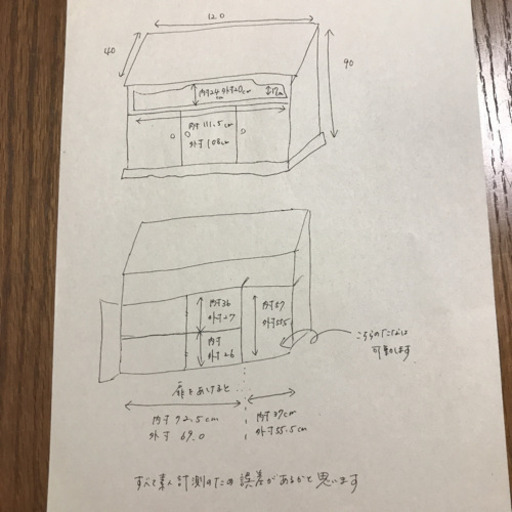 120
40
90
内寸24 外寸20cm
17cm
内寸 111.5cm
外寸 108cm
内寸36
外寸27
内寸
外寸26
内寸57
外寸55.5
こちらのたなは
可動します
扉をあけると...
内寸 72.5cm
外寸 69.0
内寸37cm
外寸55.5cm
すべて素人計測のため誤差があるかと思います